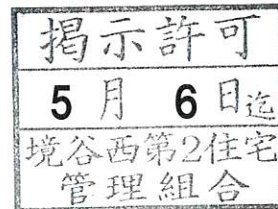 掲示許可
5月 6日迄
境谷西第2住宅
管理組合